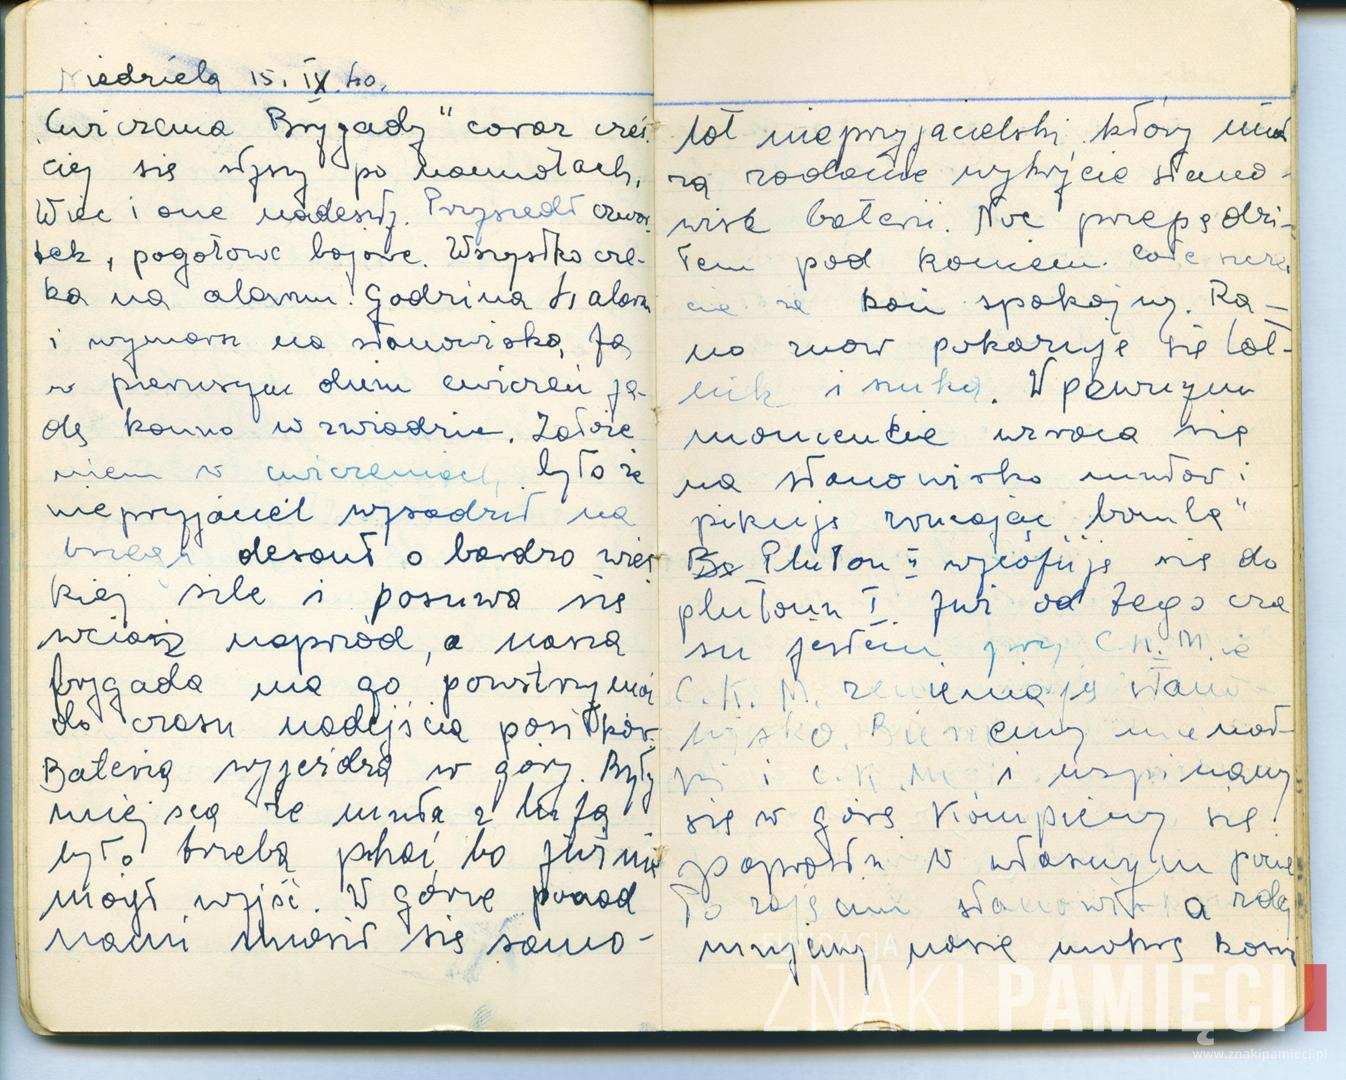 Niedziela 15. IX 40.
Ćwiczenia Brygady" coraz częś
ciej się słyszy po namiotach,
Więc i one nadeszły. Przyszedł czwar
tek, pogotowie bojowe. Wszystko cze-
ka na alarm. Godzina 4 alarm
i wymarsz na stanowiska, Ja
w pierwszym dniu ćwiczeń ja-
dę konno w zwiadzie. Założe
niem w ćwiczeniach było że
nieprzyjaciel wysadził na
brzegu desant o bardzo wiel
kiej sile i posuwa się
wciąż naprzód, a nasza
brygada ma go powstrzymać
do czasu nadejścia posiłków.
Bateria wyjeżdża w góry. Były
miejsca że muła z lufą
było trzeba pchać bo już nie
mógł wyjść. W górze ponad
nami unosił się samo-
lot nieprzyjacielski który miał
za zadanie wykrycie stano-
wisk baterii. Noc przepędzi-
łem pod koniem. Całe szczę
cie że koń spokojny. Ra-
no znów pokazuje się lot-
nik i szuka. W pewnym
momencie wraca się
na stanowisko mułów i
pikuje rzucając bombę"
Pluton II wycofuje się do
plutonu I. Już od tego cza
su jestem przy C.K.M. i
C.K.M. zmieniają stano
wisko. Bierzemy
i C.K.M. i wspinamy
się w górę. Kąpiemy się
poprostu w własnym pocie
Po zajęciu stanowiska zdej
mujemy nasze mokre kosz
FUNDACJA
ZNAKI PAMIĘCI
www.znakipamieci.pl